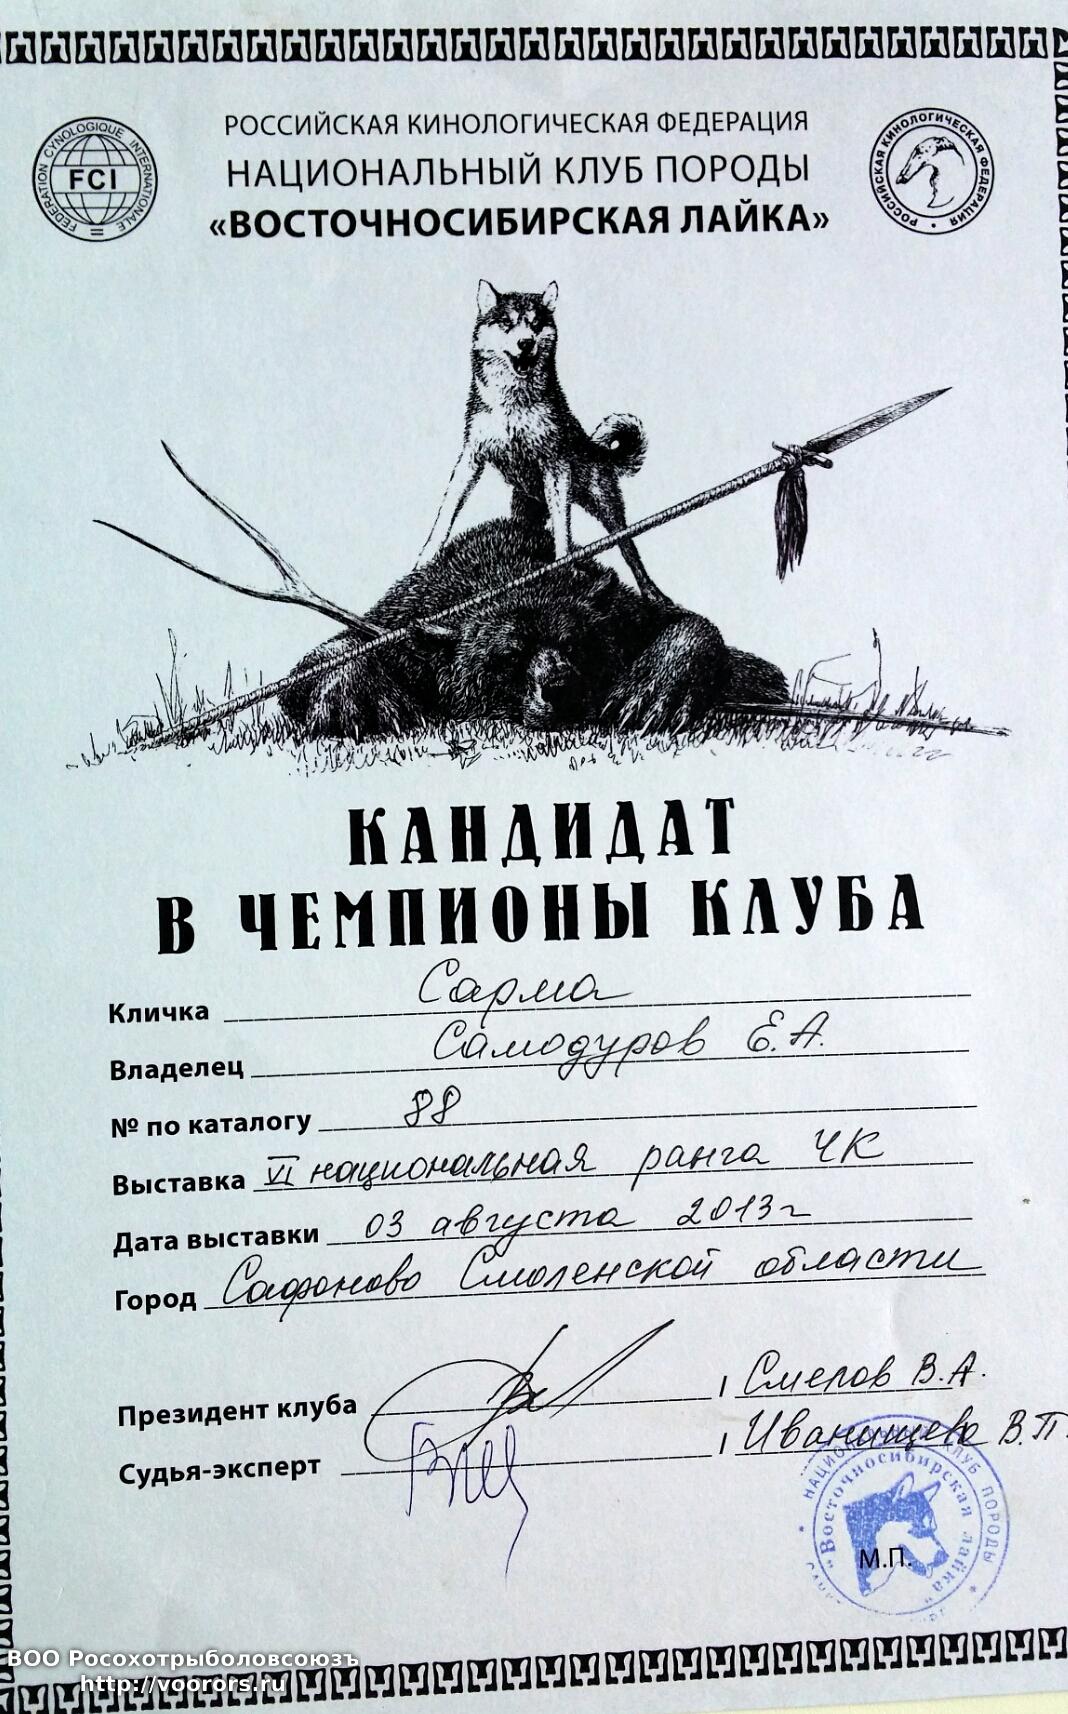 РОССИЙСКАЯ КИНОЛОГИЧЕСКАЯ ФЕДЕРАЦИЯ
НАЦИОНАЛЬНЫЙ КЛУБ ПОРОДЫ
«ВОСТОЧНОСИБИРСКАЯ ЛАЙКА»
FEDERATION CYNOLOGIQUE INTERNATIONALE
FCI
РОССИЙСКАЯ КИНОЛОГИЧЕСКАЯ ФЕДЕРАЦИЯ
КАНДИДАТ
В ЧЕМПИОНЫ КЛУБА
Кличка Сарма
Владелец Самодуров Е.А.
№ по каталогу 88
Выставка VI национальная ранга ЧК
Дата выставки 03 августа 2013г
Город Сафоново Смоленской области
Президент клуба / В.А.
Судья-эксперт / Иванищева В.П.
НАЦИОНАЛЬНЫЙ КЛУБ ПОРОДЫ
"Восточносибирская лайка"
М.П.
ВОО Росохотрыболовсоюзъ
http://voorors.ru